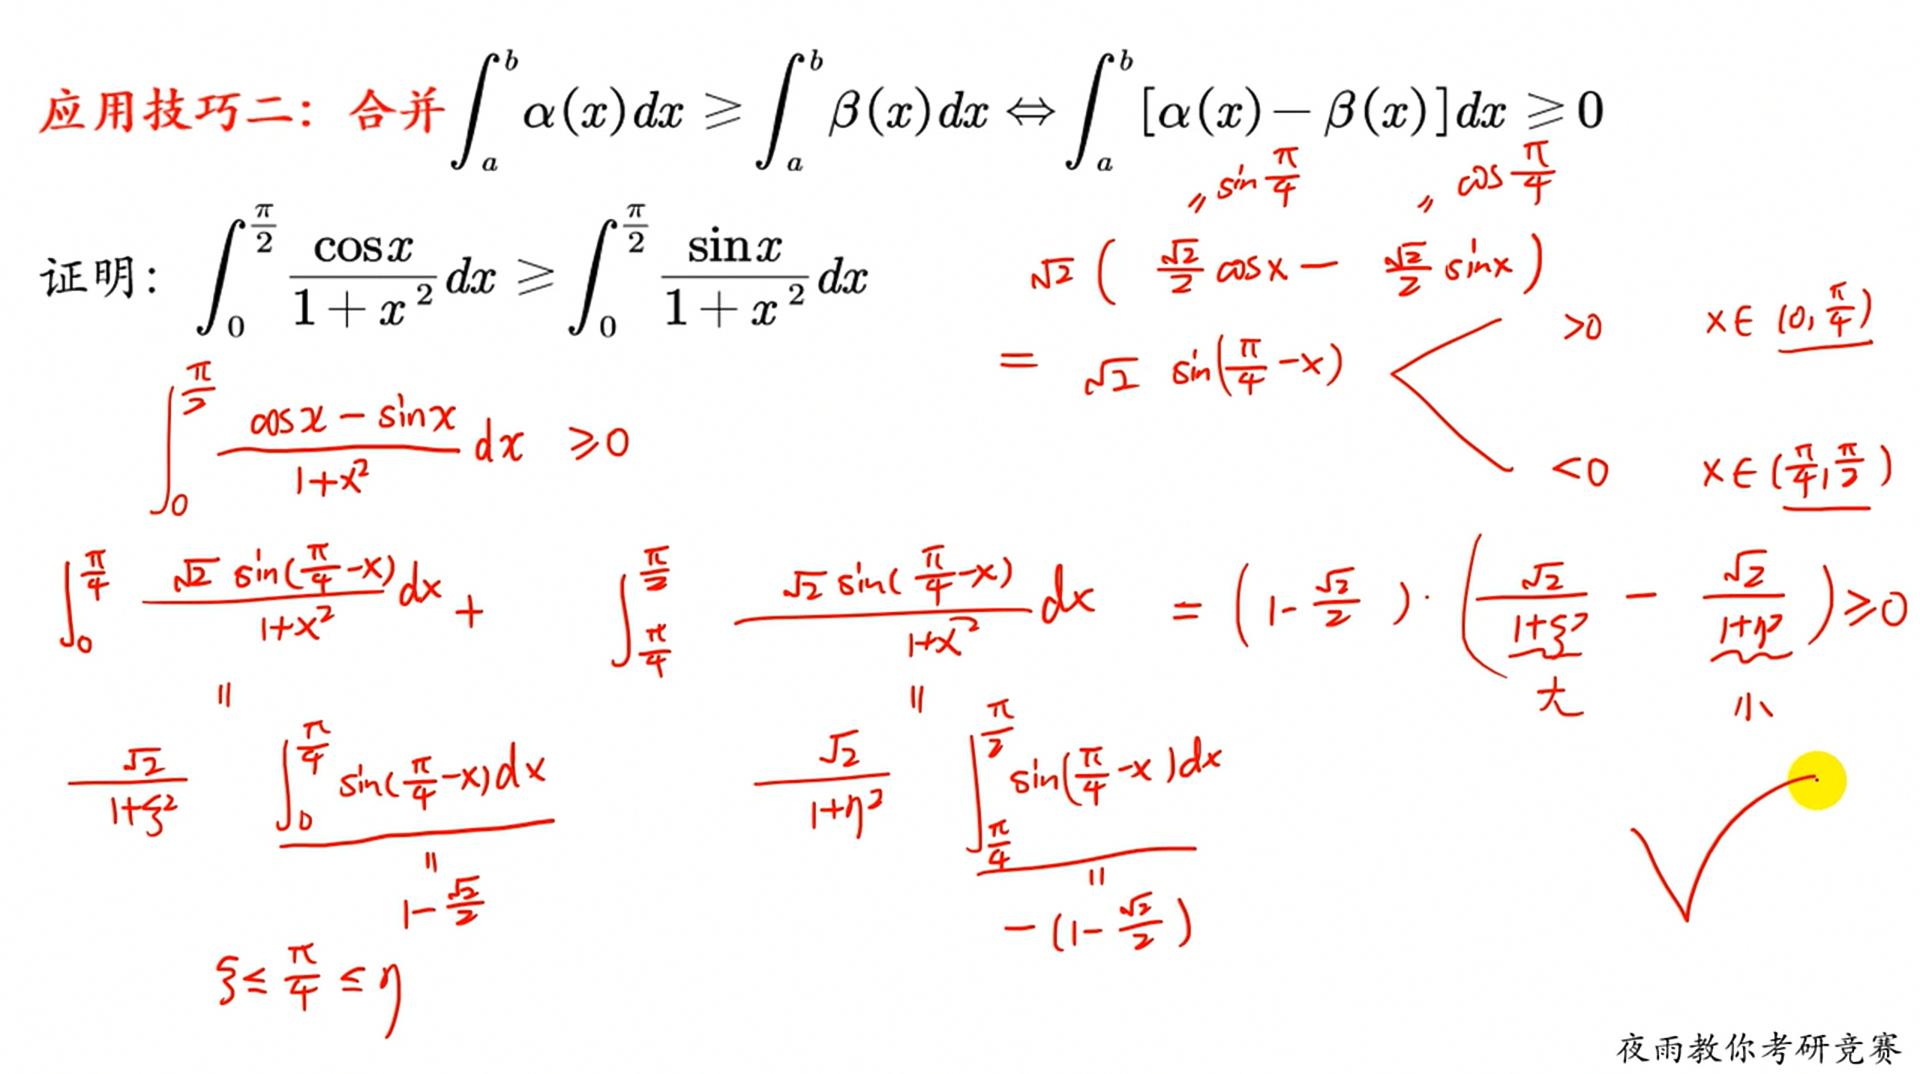 应用技巧二：合并 ∫_a^b α(x)dx ⩾ ∫_a^b β(x)dx ⇔ ∫_a^b [α(x)−β(x)]dx ⩾ 0
〃 sin π/4 〃 cos π/4
证明： ∫_0^{π/2} cosx/(1+x²) dx ⩾ ∫_0^{π/2} sinx/(1+x²) dx
√2 ( √2/2 cosx − √2/2 sinx )
= √2 sin(π/4 −x)
>0 x∈ (0, π/4)
<0 x∈ (π/4, π/2)
∫_0^{π/2} (cosx − sinx)/(1+x²) dx ⩾0
∫_0^{π/4} √2 sin(π/4 −x)/(1+x²) dx + ∫_{π/4}^{π/2} √2 sin(π/4 −x)/(1+x²) dx = (1− √2/2)·(√2/(1+ξ²) − √2/(1+η²)) ⩾0
大 小
〃 〃
√2/(1+ξ²) ∫_0^{π/4} sin(π/4 −x)dx √2/(1+η²) ∫_{π/4}^{π/2} sin(π/4 −x)dx
〃 〃
1− √2/2 −(1− √2/2)
ξ≤ π/4 ≤η
夜雨教你考研竞赛